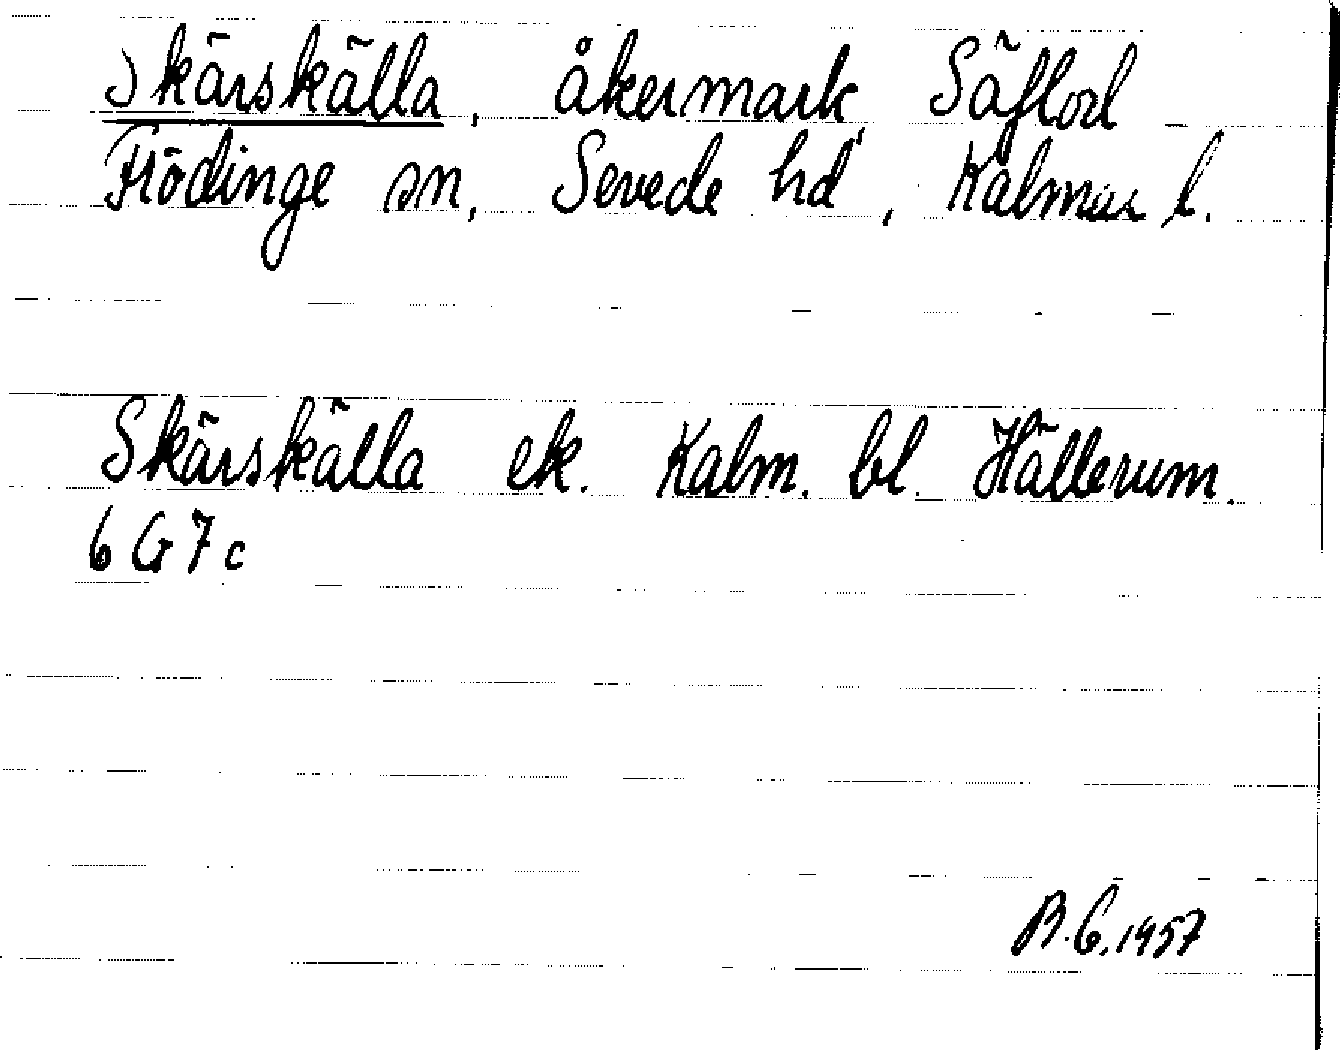 Skärskälla, åkermark, Säflod
Flödinge sn, Sevede hd, Kalmar l.
Skärskälla ek. Kalm. bl. Hällerum.
6 G 7 c
1957